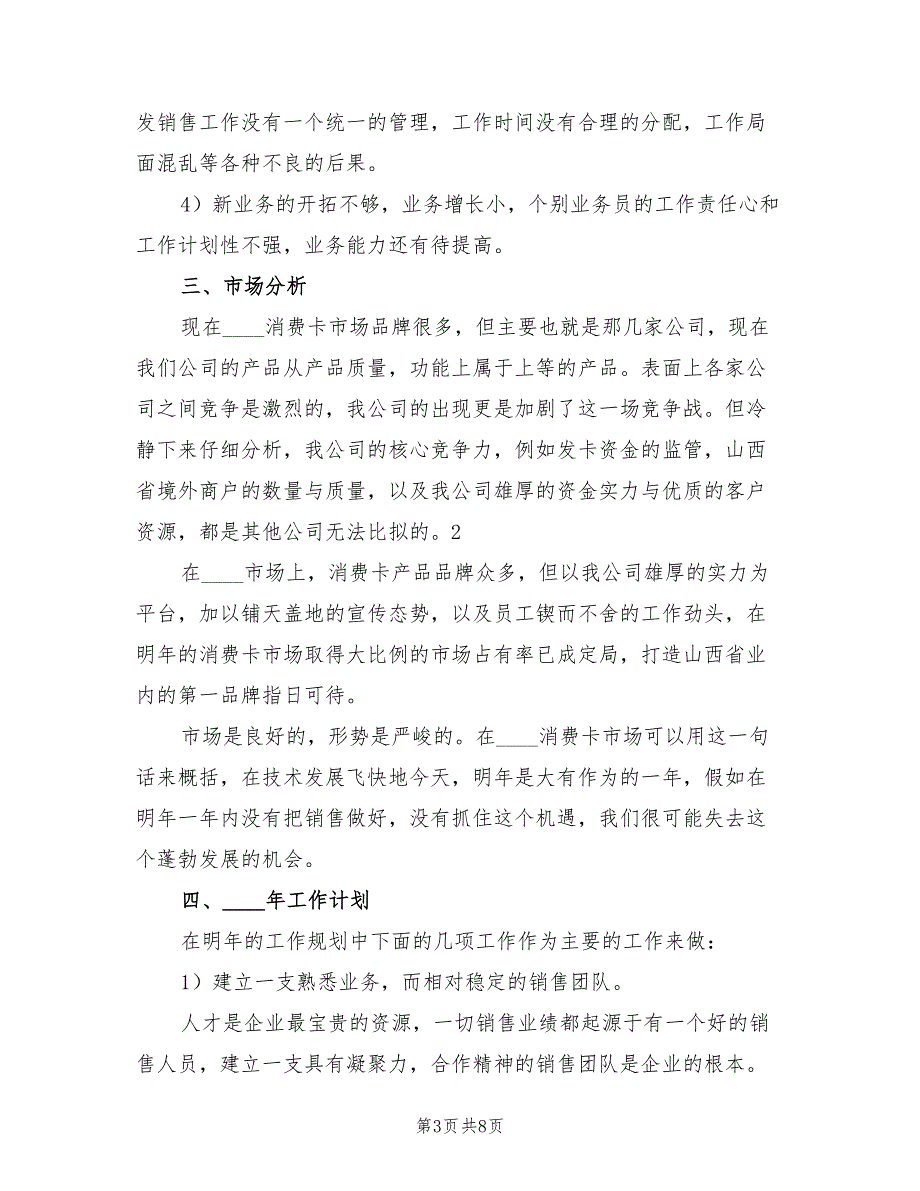 发销售工作没有一个统一的管理，工作时间没有合理的分配，工作局
面混乱等各种不良的后果。
4）新业务的开拓不够，业务增长小，个别业务员的工作责任心和
工作计划性不强，业务能力还有待提高。
三、市场分析
现在____消费卡市场品牌很多，但主要也就是那几家公司，现在
我们公司的产品从产品质量，功能上属于上等的产品。表面上各家公
司之间竞争是激烈的，我公司的出现更是加剧了这一场竞争战。但冷
静下来仔细分析，我公司的核心竞争力，例如发卡资金的监管，山西
省境外商户的数量与质量，以及我公司雄厚的资金实力与优质的客户
资源，都是其他公司无法比拟的。2
在____市场上，消费卡产品品牌众多，但以我公司雄厚的实力为
平台，加以铺天盖地的宣传态势，以及员工锲而不舍的工作劲头，在
明年的消费卡市场取得大比例的市场占有率已成定局，打造山西省业
内的第一品牌指日可待。
市场是良好的，形势是严峻的。在____消费卡市场可以用这一句
话来概括，在技术发展飞快地今天，明年是大有作为的一年，假如在
明年一年内没有把销售做好，没有抓住这个机遇，我们很可能失去这
个蓬勃发展的机会。
四、____年工作计划
在明年的工作规划中下面的几项工作作为主要的工作来做：
1）建立一支熟悉业务，而相对稳定的销售团队。
人才是企业最宝贵的资源，一切销售业绩都起源于有一个好的销
售人员，建立一支具有凝聚力，合作精神的销售团队是企业的根本。
第3页 共8页